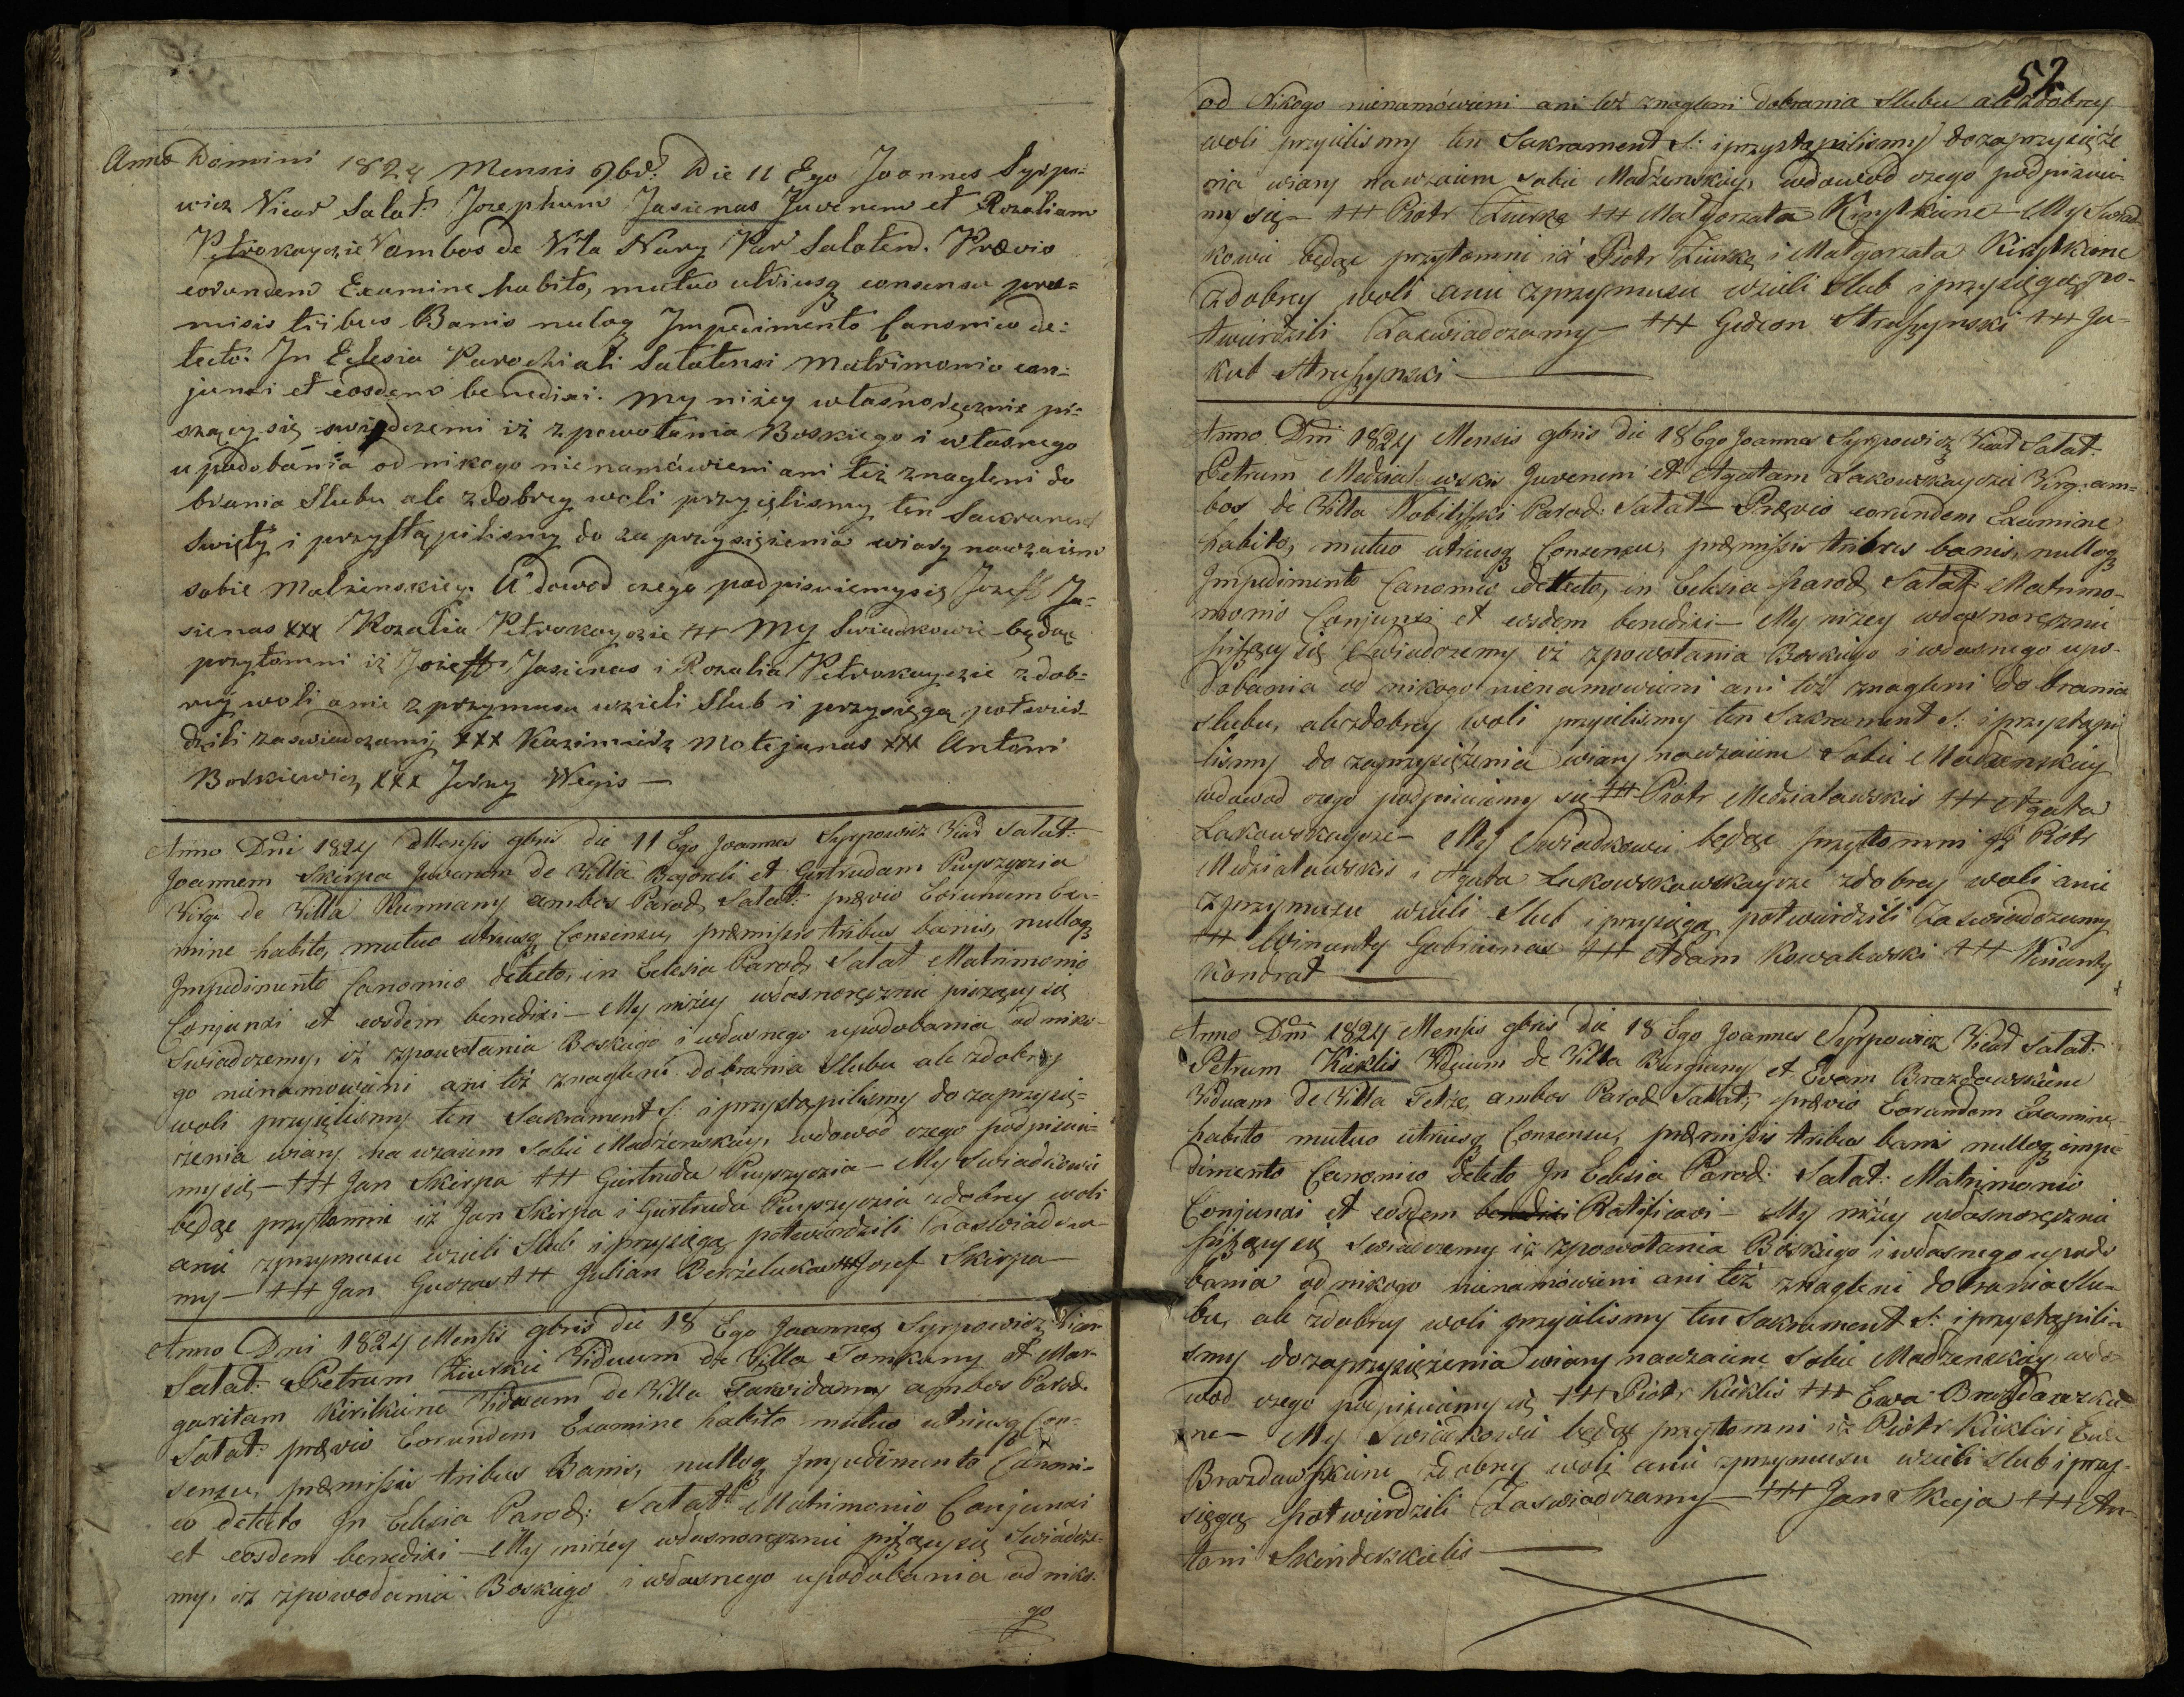 Anno Domini 1824 Mensis 9br: Die 11 Ego Joannes Syrpo-
wicz Vicar Salat: Josephum Jasienas Juvenem et Rozaliam
Petrokayczie Vambos de Vila Nary Par Salatend. Prævio
eorundem Examine habito, mutuo utriusq consensu præ-
misis tribus Banis nuloq Impedimento Canonico de-
tecto. In Eclesia Parochiali Salatensi Matrimonio con-
junxi et eosdem benedixi. My niżey własnoręcznie pi-
szący się swiadczemi iż z powołania Boskiego i własnego
upodobania od nikogo nie namówieni ani też znagleni do
brania Slubu ale z dobrey woli przyięlismy ten Sakrament
Swięty i przystąpilismy do zaprzysiężenia wiary nawzaiem
sobie Małżenskiey. W dowod czego podpisuiemysię Jozeff Ja-
sienas xxx Rozalia Petrokayczie +++ My Swiadkowie będąc
przytomni iż Jozeff Jasienas i Rozalia Petrokayczie z dob-
rey woli anie z przymusu wzieli Slub i przysięgą potwier-
dzili zaswiadczamy xxx Kazimierz Motejunas xxx Antoni
Borkiewicz xxx Jerzy Wegis —
Anno Dni 1824 Mensis 9bris die 11 Ego Joannes Syrpowicz Vicar Salat:
Joannem Skirpa Juvenem de Villa Bajoreli et Gertrudam Puyszyczia
Virg: de Villa Rummany ambos Paroch Salat: prævio Eorundem Exa-
mine habito, mutuo utriusq Consensu, præmissis tribus banis, nulloq
Impedimento Canonico detecto, in Eclesia Paroch Salat Matrimonio
Conjunxi et eosdem benedixi — My niżey własnoręcznie piszący się
Swiadczemy, iż z powołania Boskiego i własnego upodobania od niko-
go nienamowieni ani też znagleni dobrania Slubu ale zdobrey
woli przyięlismy ten Sakrament S: i przystąpilismy do zaprzysię-
żenia wiary na wzaiem sobie Madżenskiey, wdowod czego podpisuie-
my się — +++ Jan Skirpa +++ Giertruda Puyszyczia — My Swiadkowie
będąc przytomni iż Jan Skirpa i Giertruda Puyszyczia zdobrey woli
anie zprzymusu wzieli Slub i przysięgą potwierdzili Zaswiadcza-
my — +++ Jan Guozas +++ Julian Berżelukas +++ Josef Skirpa —
Anno Dni 1824 Mensis 9bris die 18 Ego Joannes Syrpowicz Vicar
Salat: Petrum Ziurkie Viduum de Villa Tomkuny et Mar-
garitam Kirilkiene Viduam de Villa Tarwidany ambos Paroch
Salat: prævio Eorundem Examine habito mutuo utriusq Con-
sensu, præmissis tribus Banis, nulloq Impedimento Canoni-
co detecto In Eclesia Paroch: Salat: Matrimonio Conjunxi
et eosdem benedixi — My niżey własnoręcznie piszący się Swiadcze-
my, iż zpowołania Boskiego i własnego upodobania od niko-
go
52
od Nikogo nienamówieni ani też znagleni dobrania Slubu ale zdobrey
woli przyielismy ten Sakrament S: i przystąpilismy dozaprzysięże
nia wiary nawzaiem sobie Madżenskiey, wdowod czego podpisuie-
my się — +++ Piotr Ziurkę +++ Małgorzata Kirytkiene — My Swiad-
kowie będąc przytomni iż Piotr Ziurkę i Małgorzata Kirytkiene
Zdobrey woli anie zprzymusu wzieli Slub i przysięgą po-
twierdzili Zaswiadczamy — +++ Gedeon Struszynski +++ Ja-
kub Struszynski —
Anno Dni 1824 Mensis 9bris die 18 Ego Joannes Syrpowicz Vicar Salat:
Petrum Medziatawskis Juvenem et Agatam Lakowskayczie Virg: am-
bos de Villa Nobiliszki Paroch: Salat — Prævio eorundem Examine
habito, mutuo utriusq Consensu, præmissis tribus banis, nulloq
Impedimento Canonico detecto, in Eclesia Paroch Salat Matrimo-
monio Conjunxi et eosdem benedixi — My niżey własnoręcznie
piszący się Swiadczemy iż zpowołania Boskiego i własnego upo-
dobania od nikogo nienamowieni ani też znagleni do brania
slubu, ale zdobrey woli przyielismy ten Sakrament S: i przystąpi
lismy do zaprzysiężenia wiary nawzaiem Sobie Madżenskiey
wdowod czego podpisuiemy się +++ Piotr Medziatawskis +++ Agata
Lakowskayczie — My Swiadkowie będąc przytomni iż Piotr
Medziatawskis i Agata Lakowskowskaycze zdobrey woli anie
zprzymusu wzieli Slub i przysięgą potwierdzili Zaswiadczamy
+++ Winanty Gabriunas +++ Adam Kowalewski +++ Winanty
Kondrat —
Anno Dni 1824 Mensis 9bris die 18 Ego Joannes Syrpowicz Vicar Salat:
Petrum Kieklis Viduum de Villa Burgiany et Evam Brazdawskiene
Viduam de Villa Telże, ambos Paroch Salat, prævio Eorundem Examine
habito mutuo utriusq Consensu, præmissis tribus banis nulloq impe
dimento Canonico detecto In Eclesia Paroch: Salat: Matrimonio
Conjunxi et eosdem benedixi Ratificavi — My niżey własnoręcznie
piszący się swiadczemy iż zpowołania Boskiego i własnego upodo
bania od nikogo nienamówieni ani też znagleni dobrania Slu-
bu, ale zdobrey woli przyielismy ten Sakrament S: i przystąpili-
smy dozaprzysiężenia wiary nawzaiem sobie Madżenskiey, wdo-
wod czego podpisuiemy się +++ Piotr Kieklis +++ Ewa Brazdawskie
ne — My Swiadkowie będąc przytomni iż Piotr Kieklis i Ewa
Brazdawskiene Zdobrey woli anie zprzymusu wzieli slub i przy-
sięgą potwierdzili Zaswiadczamy — +++ Jan Skieja +++ An-
toni Skinderskielis —